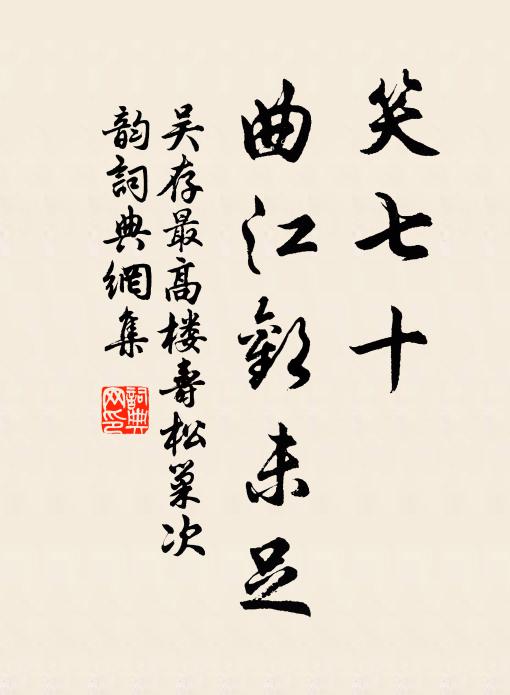 笑七十
曲江歡未足
吴存最高楼壽松巢次
韵詞典網集
詞典网印